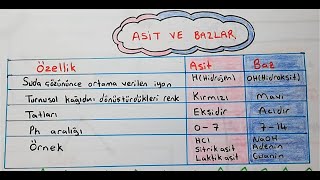 ASİT VE BAZLAR
Özellik Asit Baz
Suda çözününce ortama verilen iyon H(Hidrojen) OH(Hidroksit)
Turnusol kağıdını dönüştürdükleri renk Kırmızı Mavi
Tatları Ekşidir Acıdır
Ph aralığı 0-7 7-14
Örnek HCl NaOH
Sitrik asit Adenin
Laktik asit Guanin